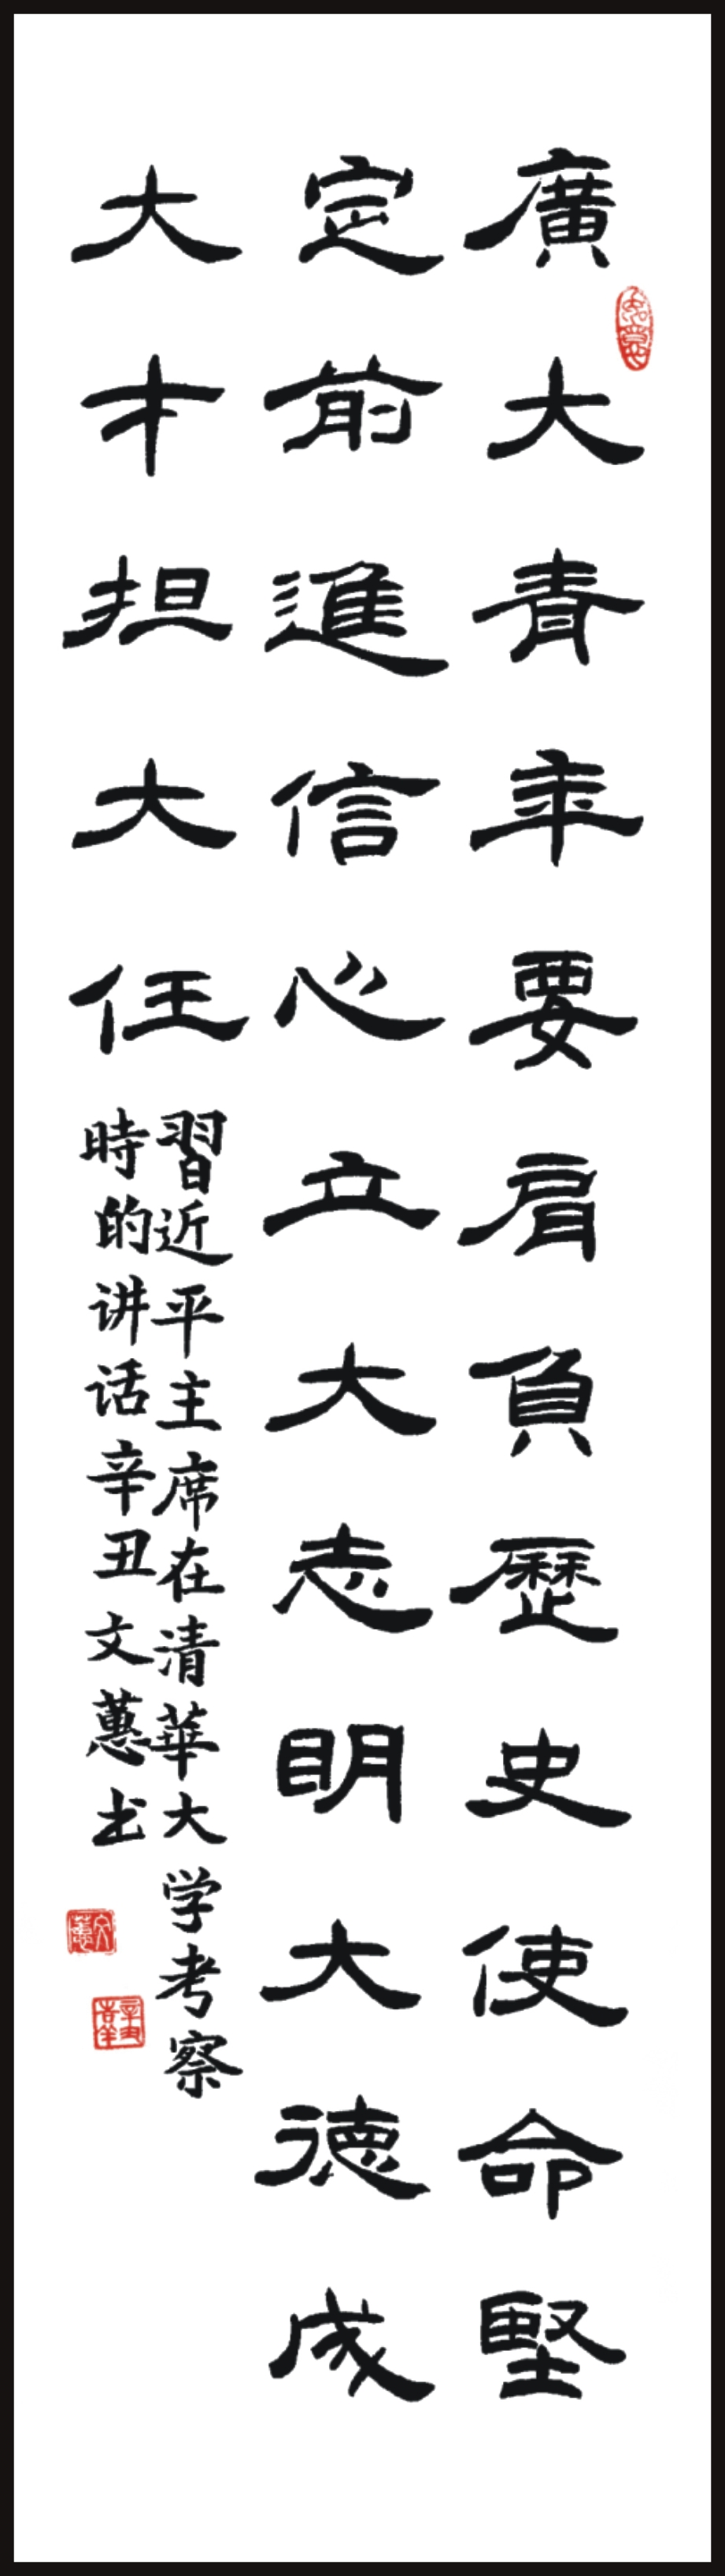 廣大青年要肩負歷史使命堅
定前進信心立大志明大德成
大才担大任
習近平主席在清華大学考察
時的讲话辛丑文蕙书
文蕙